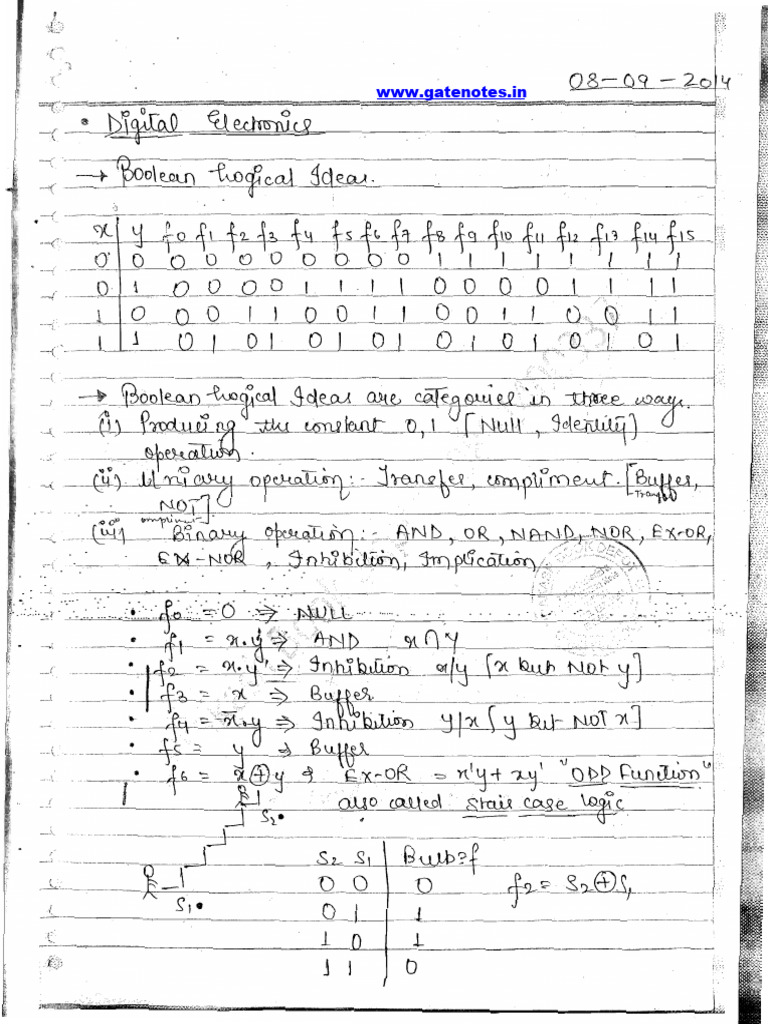 08-09-2014
www.gatenotes.in
• Digital Electronics
→ Boolean Logical Ideas.
x y f0 f1 f2 f3 f4 f5 f6 f7 f8 f9 f10 f11 f12 f13 f14 f15
0 0 0 0 0 0 0 0 0 0 1 1 1 1 1 1 1 1
0 1 0 0 0 0 1 1 1 1 0 0 0 0 1 1 1 1
1 0 0 0 1 1 0 0 1 1 0 0 1 1 0 0 1 1
1 1 0 1 0 1 0 1 0 1 0 1 0 1 0 1 0 1
→ Boolean Logical Ideas are categories in three ways.
(i) Producing the constant 0,1 [Null, Identity]
operation.
(ii) Uniary operation:- Transfer, compliment. [Buffer,
NOT]
(iii) Binary operation:- AND, OR, NAND, NOR, EX-OR,
EX-NOR, Inhibition, Implication
• f0 = 0 ⇒ NULL
• f1 = x.y ⇒ AND x∩y
• f2 = x.y' ⇒ Inhibition x/y [x but Not y]
• f3 = x ⇒ Buffer
• f4 = x̄.y ⇒ Inhibition y/x [y but NOT x]
• f5 = y ⇒ Buffer
• f6 = x⊕y ⇒ EX-OR = x'y + xy' "ODD Function"
also called stair case logic
S2•
S1•
S2 S1 Bulb?f
0 0 0 f2 = S2⊕S1
0 1 1
1 0 1
1 1 0